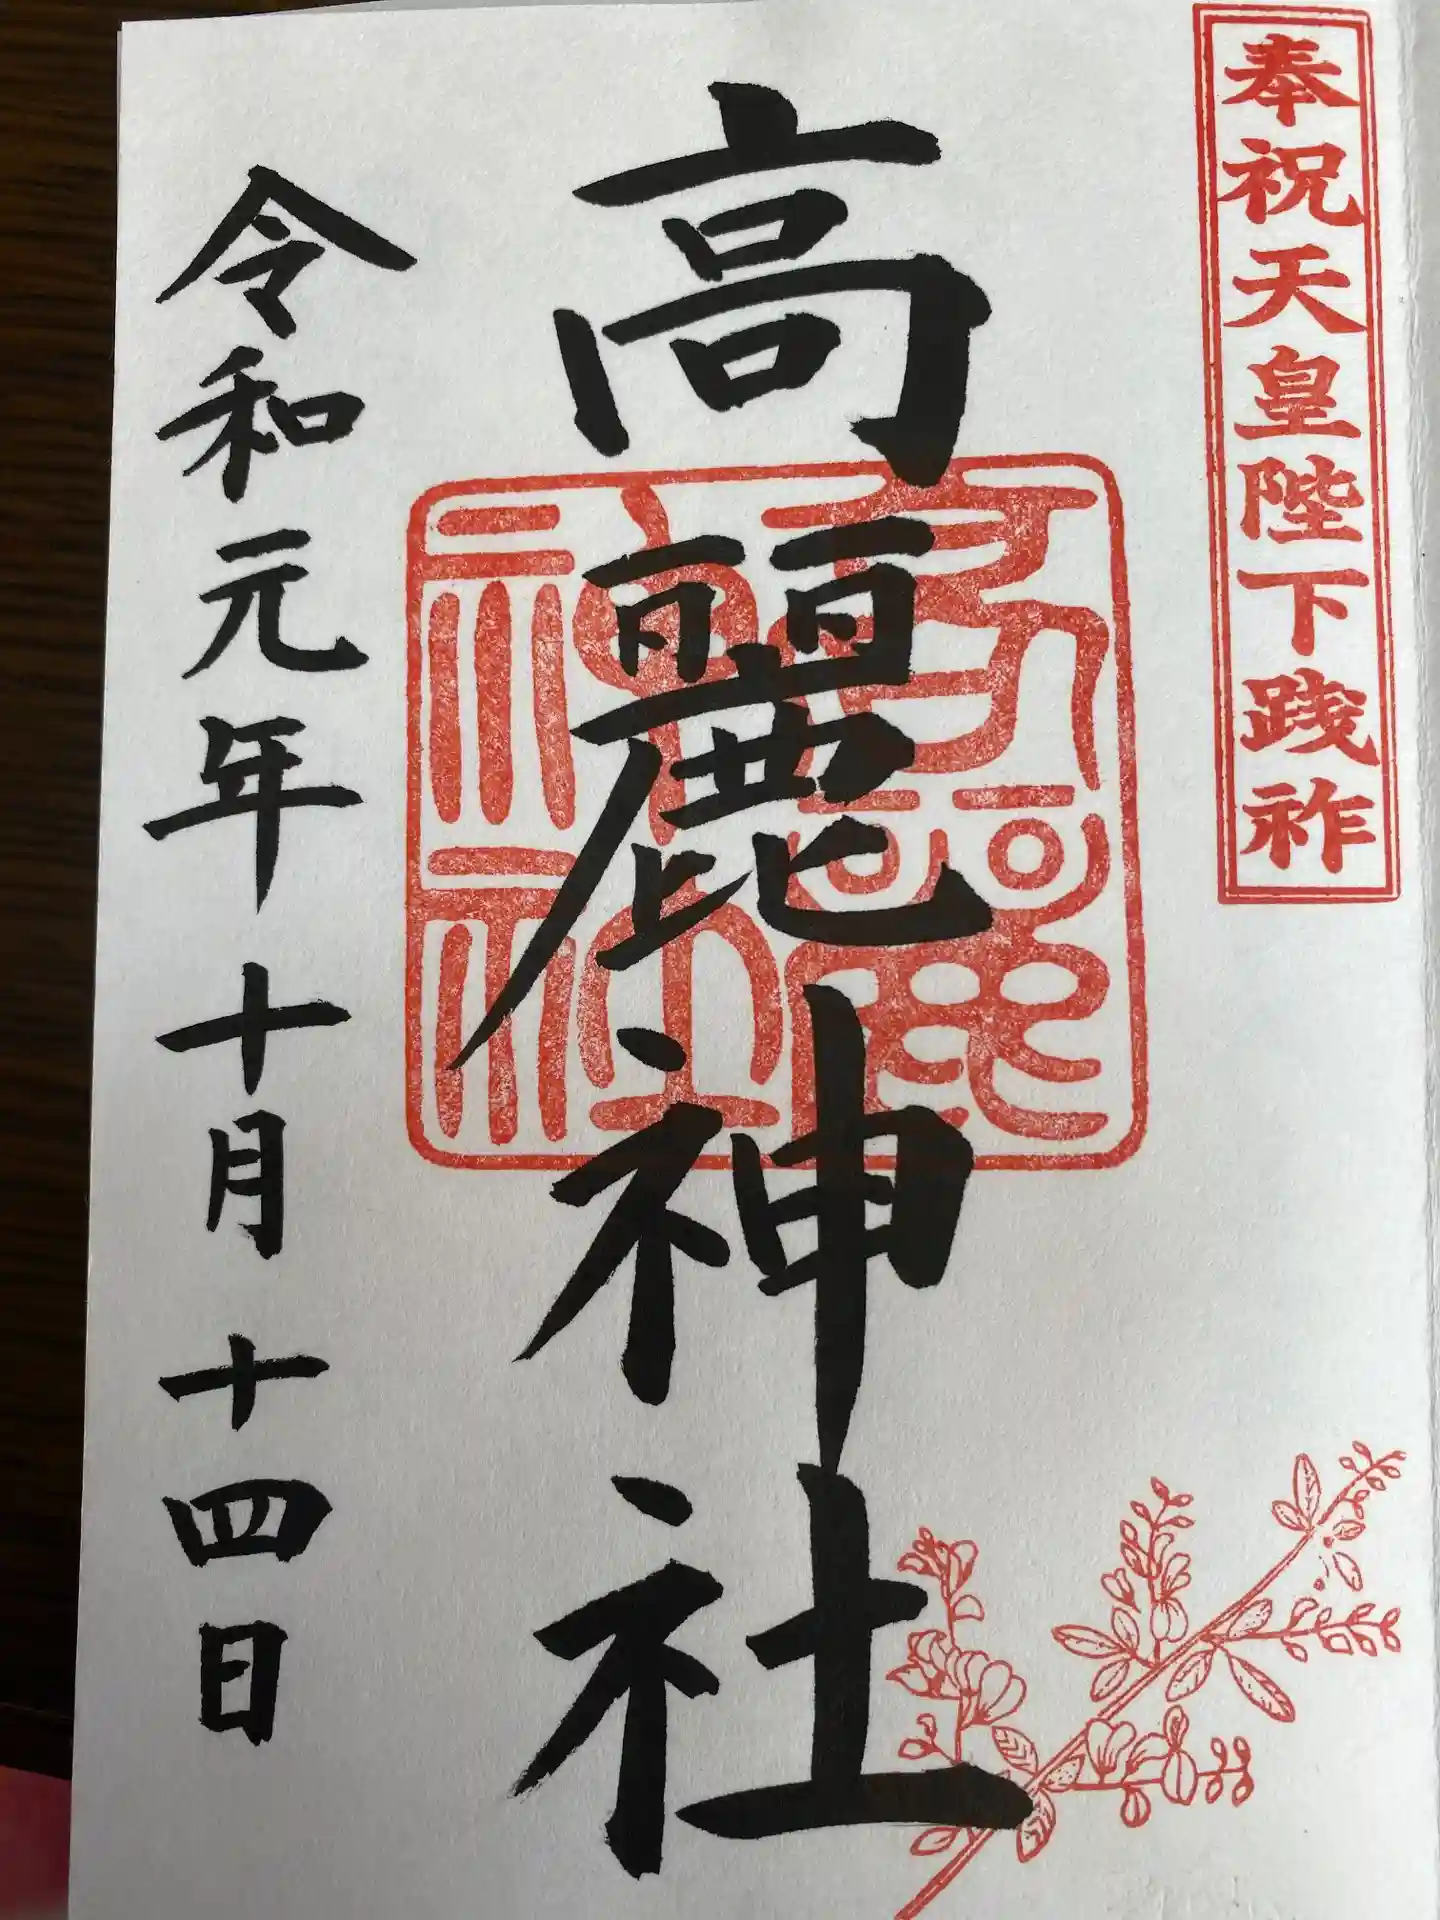 奉祝天皇陛下践祚
高麗神社
令和元年十月十四日
高麗神社